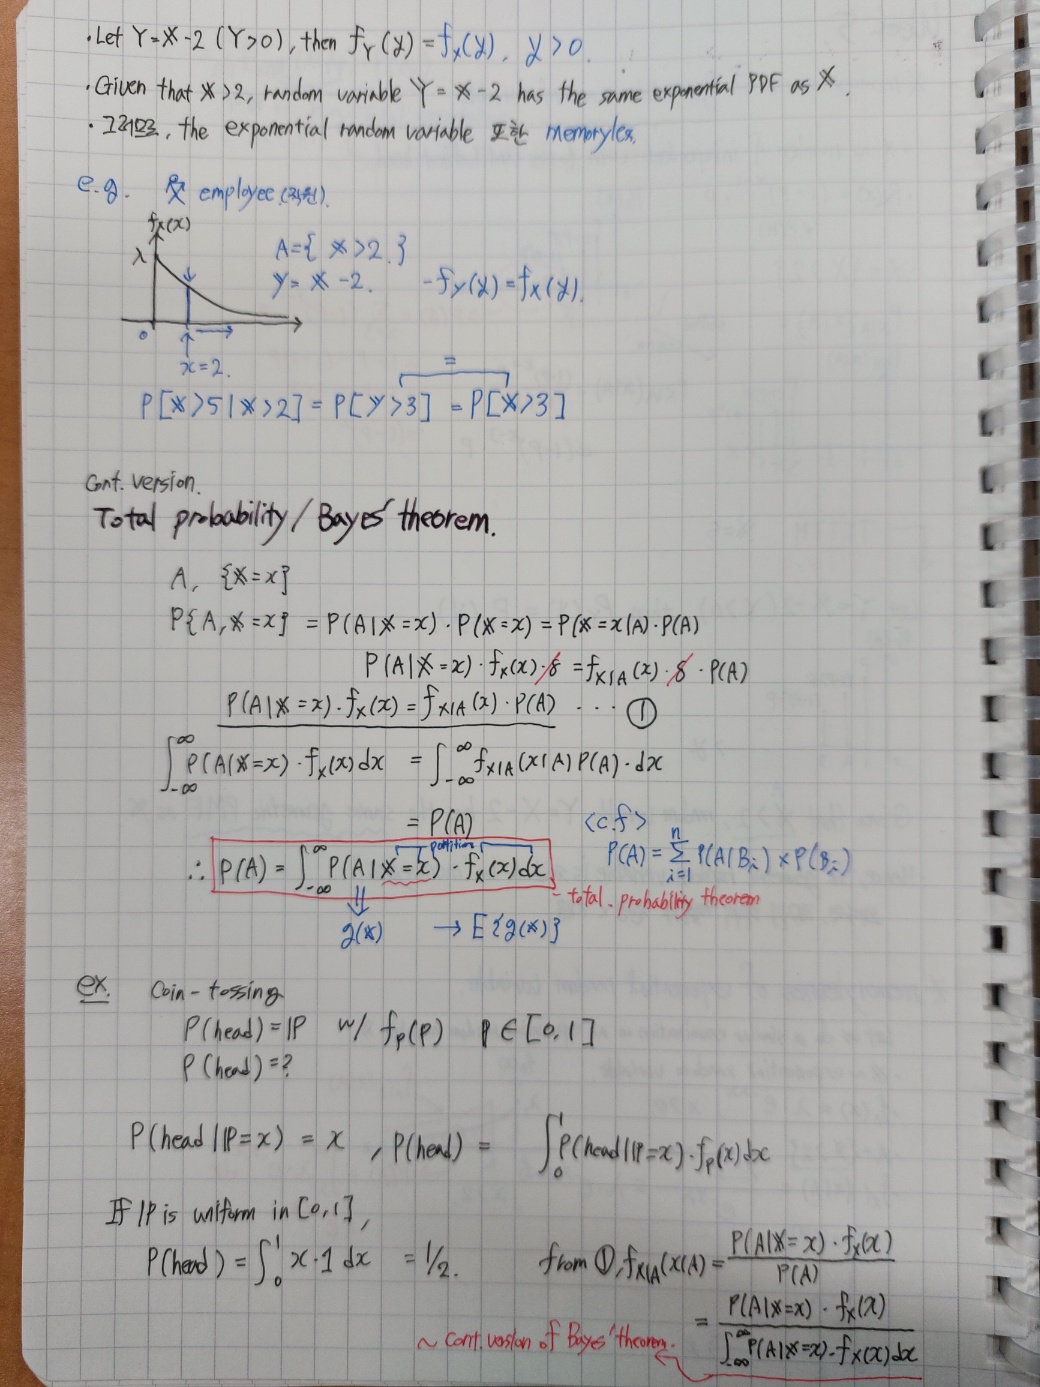 ·Let Y=X-2 (Y>0), then f_Y(y)=f_X(y), y>0.
·Given that X>2, random variable Y=X-2 has the same exponential PDF as X.
·그러므로, the exponential random variable 또한 memoryless.
e.g. X employee(직원).
f_X(x)
λ
A={X>2.}
Y=X-2. -f_Y(y)=f_X(y).
0
x=2.
=
P[X>5|X>2]=P[Y>3]=P[X>3]
Cont. version.
Total probability/Bayes' theorem.
A, {X=x}
P{A,X=x} = P(A|X=x)·P(X=x)=P(X=x|A)·P(A)
P(A|X=x)·f_X(x)·δ=f_X|A(x)·δ·P(A)
P(A|X=x)·f_X(x)=f_X|A(x)·P(A) ··· ①
∫_-∞^∞ P(A|X=x)·f_X(x)dx = ∫_-∞^∞ f_X|A(x|A)P(A)·dx
= P(A)
<c.f>
partition
P(A)=Σ_i=1^n P(A|B_i)×P(B_i)
∴ P(A)=∫_-∞^∞ P(A|X=x)·f_X(x)dx
- total probability theorem
g(X) → E{g(X)}
ex. Coin-tossing
P(head)=P w/ f_P(p) p∈[0,1]
P(head)=?
P(head|P=x)=x, P(head)= ∫_0^1 P(head|P=x)·f_P(x)dx
If P is uniform in [0,1],
P(head)=∫_0^1 x·1 dx =1/2.
from ①, f_X|A(x|A)= P(A|X=x)·f_X(x) / P(A)
= P(A|X=x)·f_X(x) / ∫_-∞^∞ P(A|X=x)·f_X(x)dx
~ Cont. version of Bayes' theorem.